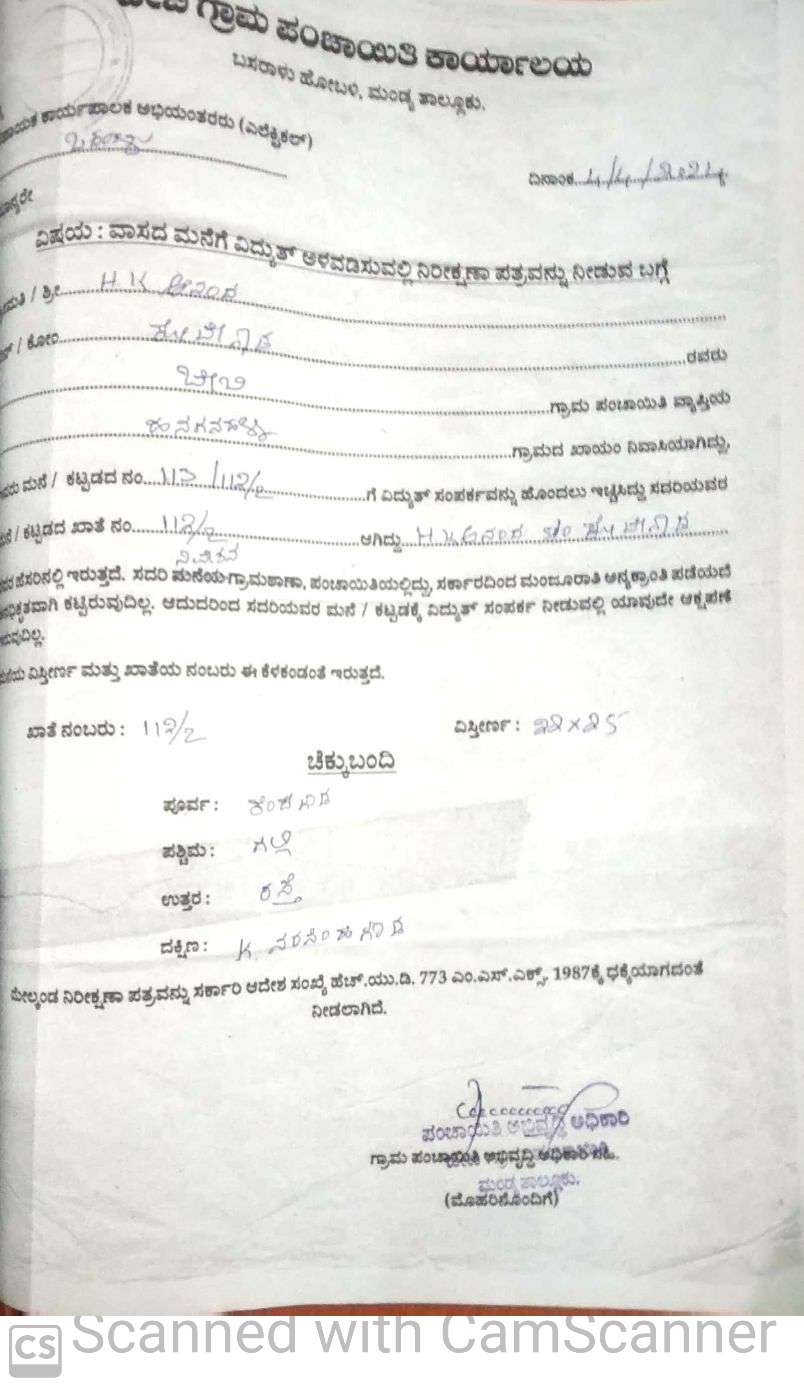 ಗ್ರಾಮ ಪಂಚಾಯಿತಿ ಕಾರ್ಯಾಲಯ
ಬಸರಾಳು ಹೋಬಳಿ, ಮಂಡ್ಯ ತಾಲ್ಲೂಕು.
ಕಾರ್ಯಪಾಲಕ ಅಭಿಯಂತರರು (ಎಲೆಕ್ಟ್ರಿಕಲ್)
ದಿನಾಂಕ..4/4/2024
ವಿಷಯ : ವಾಸದ ಮನೆಗೆ ವಿದ್ಯುತ್ ಅಳವಡಿಸುವಲ್ಲಿ ನಿರೀಕ್ಷಣಾ ಪತ್ರವನ್ನು ನೀಡುವ ಬಗ್ಗೆ
/ ಶ್ರೀ......H.K ಆನಂದ
/ ಕೋಂ......
......ರವರು
ಬೇಬಿ ......ಗ್ರಾಮ ಪಂಚಾಯಿತಿ ವ್ಯಾಪ್ತಿಯ
......ಗ್ರಾಮದ ಖಾಯಂ ನಿವಾಸಿಯಾಗಿದ್ದು,
ಮನೆ / ಕಟ್ಟಡದ ನಂ....113/112/2......ಗೆ ವಿದ್ಯುತ್ ಸಂಪರ್ಕವನ್ನು ಹೊಂದಲು ಇಚ್ಛಿಸಿದ್ದು ಸದರಿಯವರ
/ ಕಟ್ಟಡದ ಖಾತೆ ನಂ......112/2......ಆಗಿದ್ದು..H.K ಆನಂದ
ನಿವೇಶನ
ಹೆಸರಿನಲ್ಲಿ ಇರುತ್ತದೆ. ಸದರಿ ಮನೆಯ ಗ್ರಾಮಠಾಣಾ, ಪಂಚಾಯಿತಿಯಲ್ಲಿದ್ದು, ಸರ್ಕಾರದಿಂದ ಮಂಜೂರಾತಿ ಅನ್ಯಕ್ರಾಂತಿ ಪಡೆಯದೆ
ಕಟ್ಟಿರುವುದಿಲ್ಲ. ಆದುದರಿಂದ ಸದರಿಯವರ ಮನೆ / ಕಟ್ಟಡಕ್ಕೆ ವಿದ್ಯುತ್ ಸಂಪರ್ಕ ನೀಡುವಲ್ಲಿ ಯಾವುದೇ ಆಕ್ಷಪಣೆ
ವಿಸ್ತೀರ್ಣ ಮತ್ತು ಖಾತೆಯ ನಂಬರು ಈ ಕೆಳಕಂಡಂತೆ ಇರುತ್ತದೆ.
ಖಾತೆ ನಂಬರು : 112/2 ವಿಸ್ತೀರ್ಣ : 22×25
ಚೆಕ್ಕುಬಂದಿ
ಪೂರ್ವ : ಕೆಂಚೇಗೌಡ
ಪಶ್ಚಿಮ : ಗಲ್ಲಿ
ಉತ್ತರ : ರಸ್ತೆ
ದಕ್ಷಿಣ : K. ನರಸಿಂಹೇಗೌಡ
ಮೇಲ್ಕಂಡ ನಿರೀಕ್ಷಣಾ ಪತ್ರವನ್ನು ಸರ್ಕಾರಿ ಆದೇಶ ಸಂಖ್ಯೆ ಹೆಚ್.ಯು.ಡಿ. 773 ಎಂ.ಎಸ್.ಎಕ್ಸ್. 1987ಕ್ಕೆ ಧಕ್ಕೆಯಾಗದಂತೆ
ನೀಡಲಾಗಿದೆ.
ಪಂಚಾಯಿತಿ ಅಭಿವೃದ್ಧಿ ಅಧಿಕಾರಿ
ಗ್ರಾಮ ಪಂಚಾಯಿತಿ ಅಭಿವೃದ್ಧಿ ಅಧಿಕಾರಿ ಸಹಿ.
ಮಂಡ್ಯ ತಾಲ್ಲೂಕು.
(ಮೊಹರಿನೊಂದಿಗೆ)
CS Scanned with CamScanner